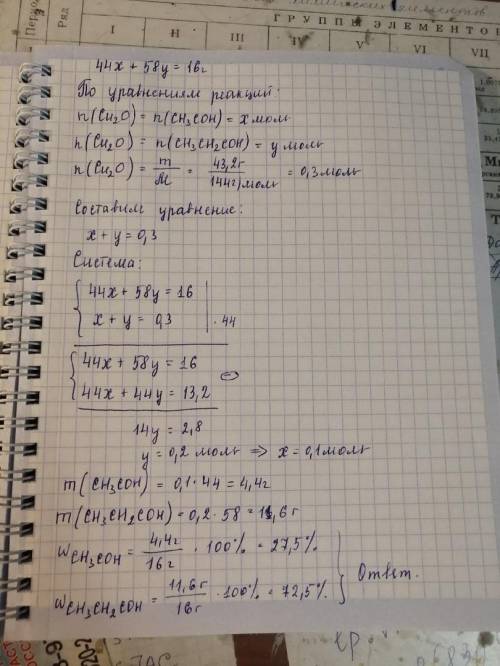 Период
Ряд
ГРУППЫ ЭЛЕМЕНТОВ
I II III IV V VI VII
44x + 58y = 16г
По уравнениям реакций:
n(Cu2O) = n(CH3COH) = x моль
n(Cu2O) = n(CH3CH2COH) = y моль
n(Cu2O) = m/M = 43,2г/144г/моль = 0,3моль
Составим уравнение:
x + y = 0,3
Система:
44x + 58y = 16
x + y = 0,3 | · 44
44x + 58y = 16
44x + 44y = 13,2 ⊖
14y = 2,8
y = 0,2 моль => x = 0,1моль
m(CH3COH) = 0,1 · 44 = 4,4г
m(CH3CH2COH) = 0,2 · 58 = 11,6г
wCH3COH = 4,4г/16г · 100% = 27,5%
wCH3CH2COH = 11,6г/16г · 100% = 72,5%
Ответ.